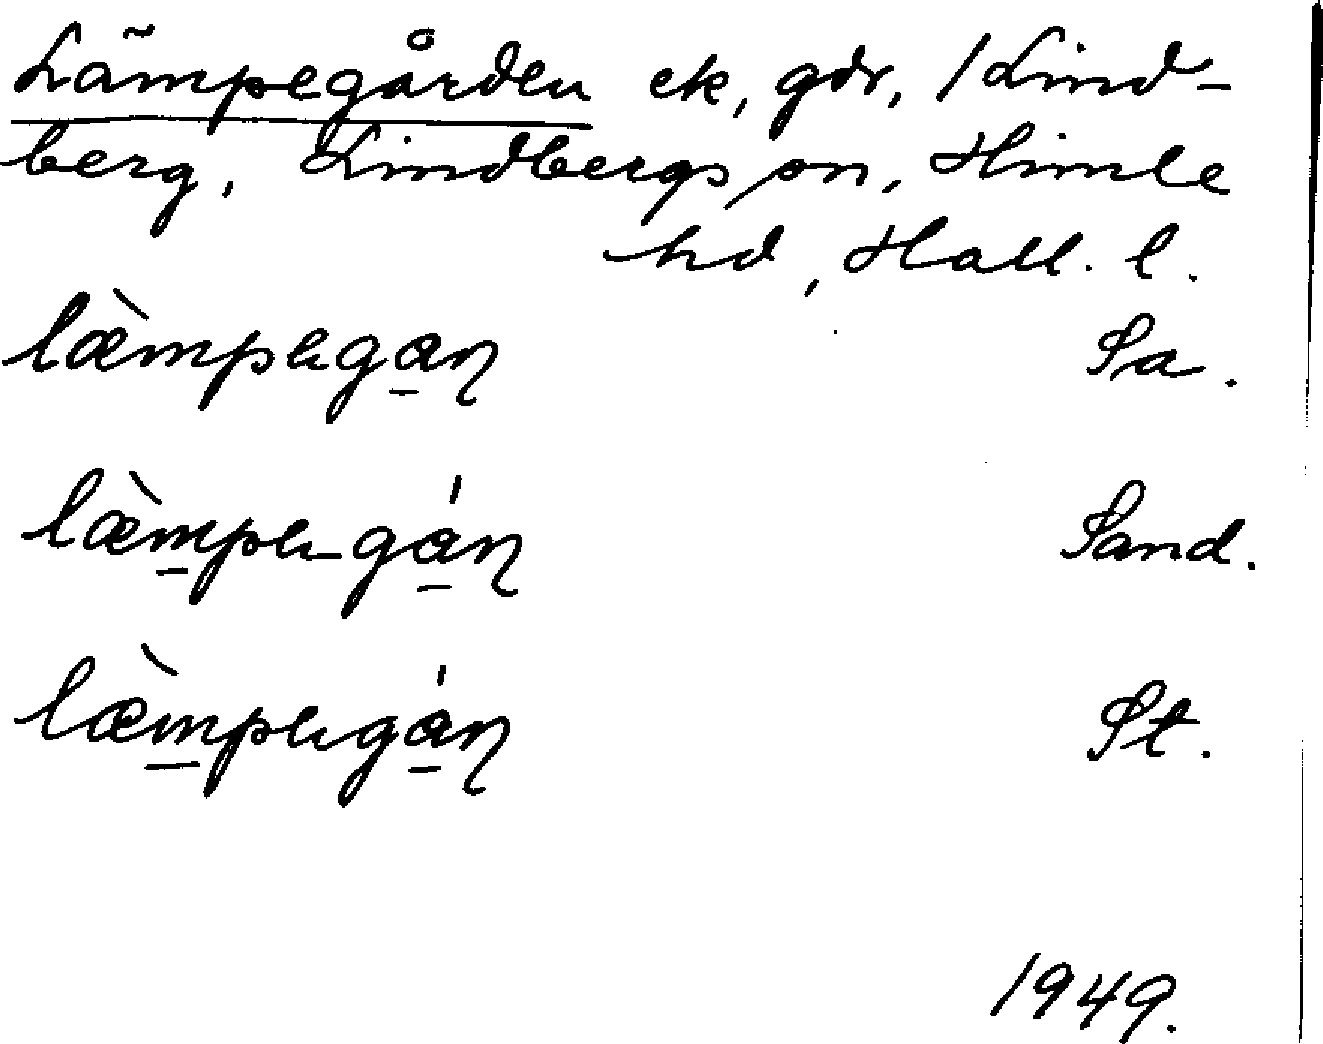 Lämpegården ek, gdr, 1 Lind-
berg, Lindbergs sn, Himle
hd, Hall. l.
læ̀mpəga̱ɳ Sa.
læ̀m̱pə-gá̱ɳ Sand.
læ̀m̱pəgá̱ɳ St.
1949.